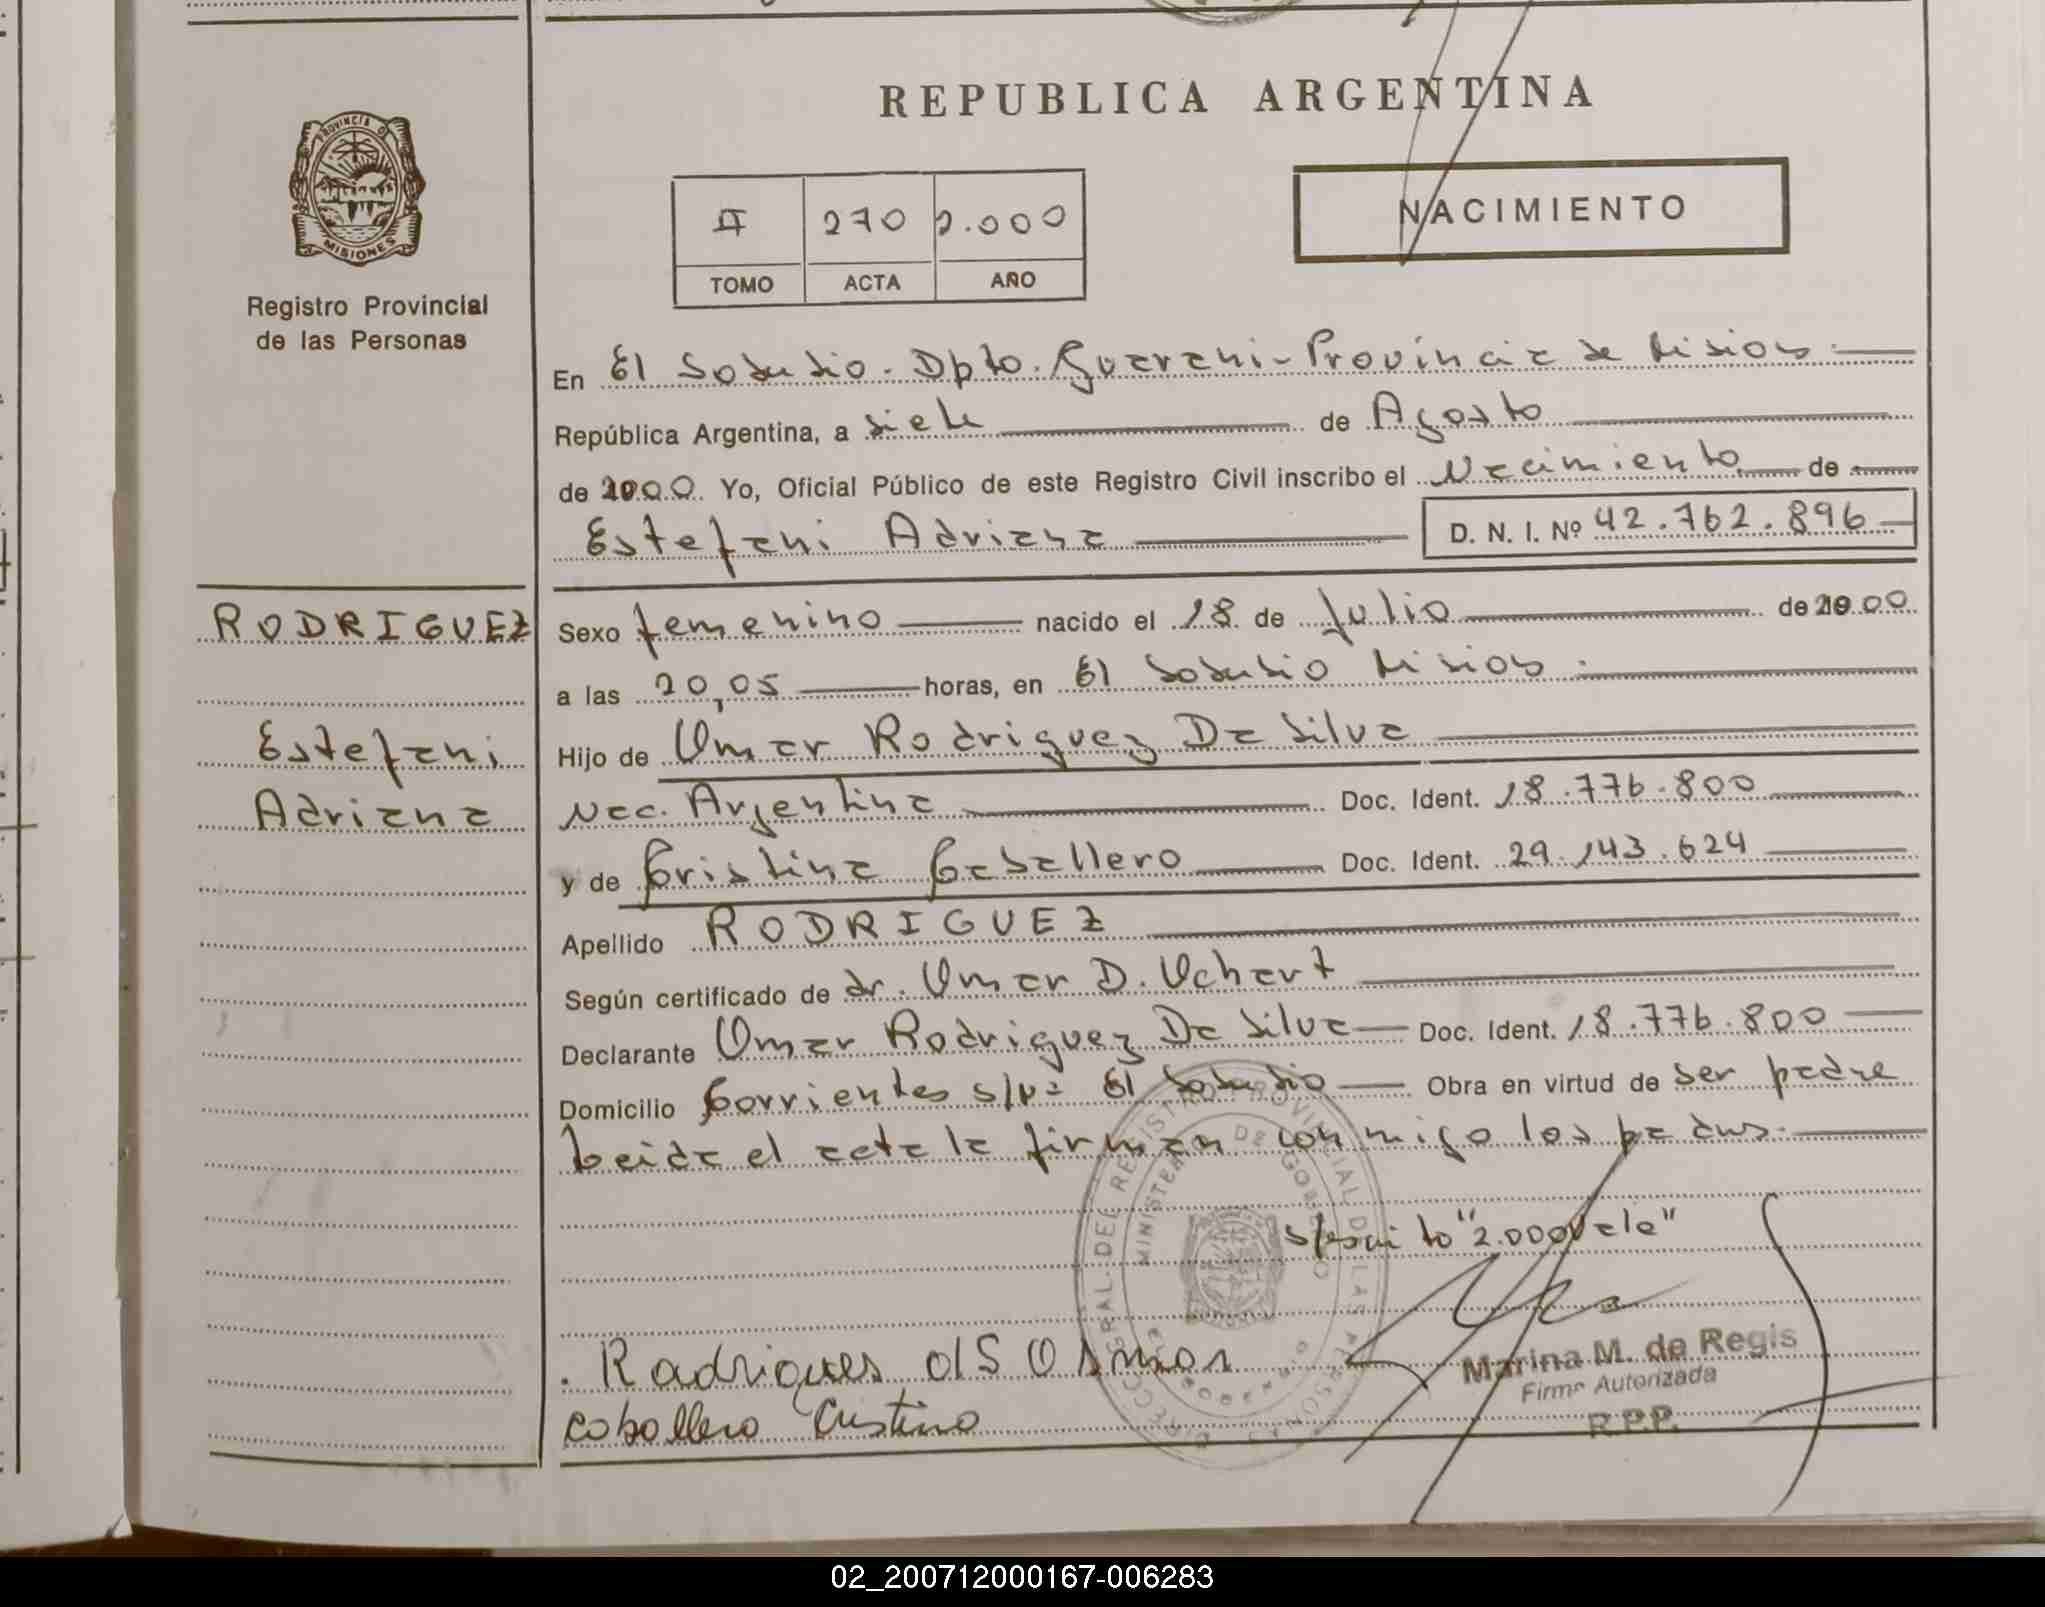 PROVINCIA DE
MISIONES
Registro Provincial
de las Personas
REPUBLICA ARGENTINA
270 2.000
TOMO ACTA AÑO
NACIMIENTO
En El Soberbio. Dpto. Guarani - Provincia de Misiones
República Argentina, a siete de Agosto
de 2000 Yo, Oficial Público de este Registro Civil inscribo el Nacimiento de
Estefani Adriana D. N. I. Nº 42.762.896
RODRIGUEZ
Estefani
Adriana
Sexo femenino nacido el 18 de Julio de 2000
a las 20,05 horas, en El Soberbio Misiones
Hijo de Omar Rodriguez Da Silva
Nac. Argentina Doc. Ident. 18.776.800
y de Cristina Caballero Doc. Ident. 29.143.624
Apellido RODRIGUEZ
Según certificado de dr. Omar D.
Declarante Omar Rodriguez Da Silva Doc. Ident. 18.776.800
Domicilio Corrientes s/nº El Soberbio Obra en virtud de ser padre
Leida el acta la firman conmigo los padres.
DIRECC. GRAL. DEL REGISTRO PROVINCIAL DE LAS PERSONAS
MINISTERIO DE GOBIERNO
"2.000 vale"
Marina M. de Regis
Firma Autorizada
R.P.P.
Caballero Cristina
02_200712000167-006283